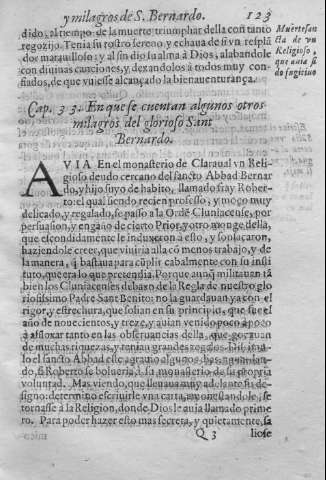 y milagros de S. Bernardo. 123
dido, al tiempo de la muerte triumphar della con tanto
regozijo. Tenia su rostro sereno y echaua de si vn resplā
dor marauilloso: y al fin dio su alma à Dios, alabandole
con diuinas canciones, y dexandolos à todos muy con-
fiados, de que vuiesse alcançado la bienauenturança.
Muerte san
cta de vn
Religioso,
que auia si
do fugitiuo
Cap. 33. En que se cuentan algunos otros
milagros del glorioso Sant
Bernardo.
AVIA En el monasterio de Claraual vn Reli-
gioso deudo cercano del sancto Abbad Bernar
do, y hijo suyo de habito, llamado fray Rober-
to: el qual siendo recien professo, y moço muy
delicado, y regalado, se passo a la Ordē Cluniacense, por
persuasion, y engaño de cierto Prior, y otro monge della,
que escondidamente le induxeron a esto, y sonsacaron,
haziendole creer, que viuiria alla cō menos trabajo, y de
la manera, q̄ bastaua para cūplir cabalmente con su insti
tuto, que era lo que pretendia. Porque aunq̄ militauan tā
bien los Cluniacenses debaxo de la Regla de nuestro glo
riosissimo Padre Sant Benito: no la guardauan ya con el
rigor, y estrechura, que solian en su principio, que fue el
año de nouecientos, y treze, y auian venido poco à poco
à afloxar tanto en las obseruancias della, que gozauan
de muchas riquezas, y tenian grandes
lo el sancto Abbad este agrauio algunos
do, si Roberto se bolueria à su monasterio de su propria
voluntad. Mas viendo, que lleuaua muy adelante su de-
signo: determino escriuirle vna carta, amonestandole, se
tornasse à la Religion, donde Dios le auia llamado prime
ro. Para poder hazer esto mas secreta, y quietamente, sa
Q 3 liose